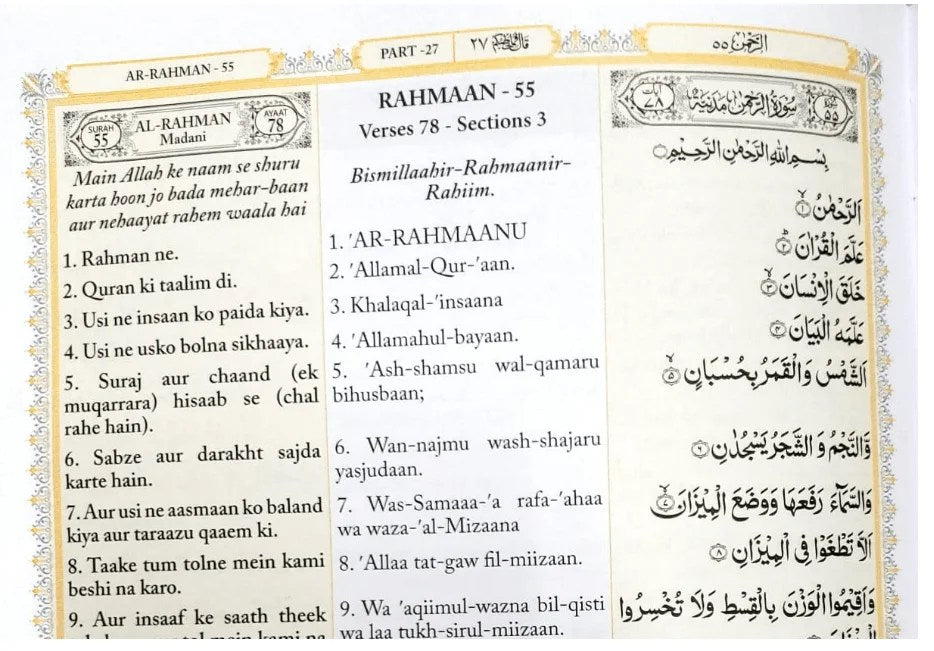 AR-RAHMAN - 55
PART -27
٢٧
الرَّحْمٰن ٥٥
SURAH
55
AL-RAHMAN
Madani
AYAAT
78
Main Allah ke naam se shuru
karta hoon jo bada mehar-baan
aur nehaayat rahem waala hai
1. Rahman ne.
2. Quran ki taalim di.
3. Usi ne insaan ko paida kiya.
4. Usi ne usko bolna sikhaaya.
5. Suraj aur chaand (ek
muqarrara) hisaab se (chal
rahe hain).
6. Sabze aur darakht sajda
karte hain.
7. Aur usi ne aasmaan ko baland
kiya aur taraazu qaaem ki.
8. Taake tum tolne mein kami
beshi na karo.
9. Aur insaaf ke saath theek
RAHMAAN - 55
Verses 78 - Sections 3
Bismillaahir-Rahmaanir-
Rahiim.
1. 'AR-RAHMAANU
2. 'Allamal-Qur-'aan.
3. Khalaqal-'insaana
4. 'Allamahul-bayaan.
5. 'Ash-shamsu wal-qamaru
bihusbaan;
6. Wan-najmu wash-shajaru
yasjudaan.
7. Was-Samaaa-'a rafa-'ahaa
wa waza-'al-Mizaana
8. 'Allaa tat-gaw fil-miizaan.
9. Wa 'aqiimul-wazna bil-qisti
wa laa tukh-sirul-miizaan.
٧٨ سُوْرَةُ الرَّحْمٰنِ مَدَنِيَّةٌ ٥٥
بِسْمِ اللّٰهِ الرَّحْمٰنِ الرَّحِيْمِ
اَلرَّحْمٰنُ ۙ﴿١﴾
عَلَّمَ الْقُرْاٰنَ ؕ﴿٢﴾
خَلَقَ الْاِنْسَانَ ۙ﴿٣﴾
عَلَّمَهُ الْبَيَانَ ﴿٤﴾
اَلشَّمْسُ وَالْقَمَرُ بِحُسْبَانٍ ۙ﴿٥﴾
وَّالنَّجْمُ وَ الشَّجَرُ يَسْجُدٰنِ ﴿٦﴾
وَالسَّمَآءَ رَفَعَهَا وَوَضَعَ الْمِيْزَانَ ۙ﴿٧﴾
اَلَّا تَطْغَوْا فِى الْمِيْزَانِ ﴿٨﴾
وَاَقِيْمُوا الْوَزْنَ بِالْقِسْطِ وَلَا تُخْسِرُوا